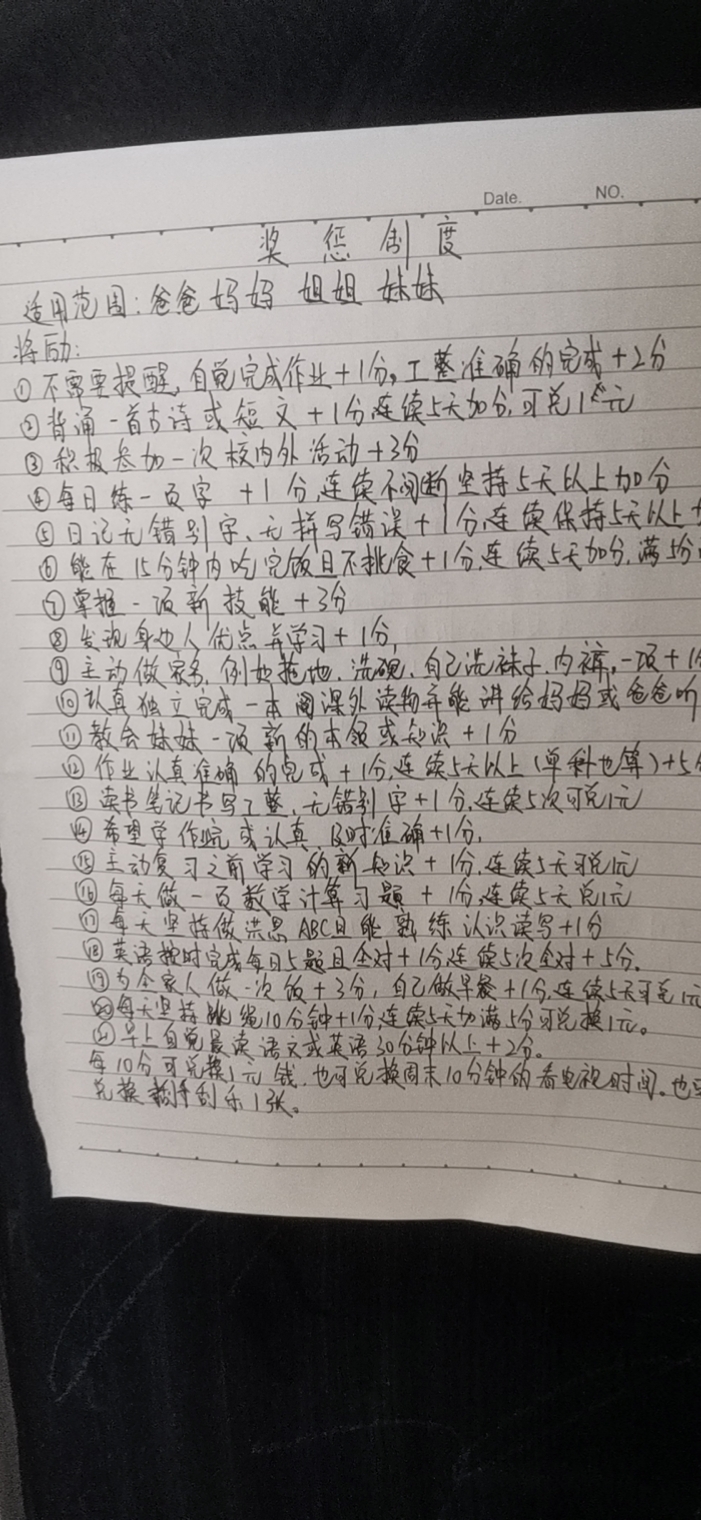 Date. NO.
奖惩制度
适用范围：爸爸 妈妈 姐姐 妹妹
将励：
①不需要提醒，自觉完成作业+1分。工整准确的完成+2分
②背诵一首古诗或短文+1分，连续5天加分，可兑1元
③积极参加一次校内外活动+3分
④每日练一页字 +1分，连续不间断坚持5天以上加分
⑤日记无错别字、无拼写错误+1分，连续保持5天以上
⑥能在15分钟内吃完饭且不挑食+1分，连续5天加分，满5分
⑦掌握一项新技能+3分
⑧发现身边人优点并学习+1分，
⑨主动做家务，例如拖地、洗碗、自己洗袜子、内裤，一项+1分
⑩认真独立完成一本阅课外读物并能讲给妈妈或爸爸听
⑪教会妹妹一项新的本领或知识+1分
⑫作业认真准确的完成+1分，连续5天以上(单科也算)+5分
⑬读书笔记书写工整，无错别字+1分，连续5次可兑1元
⑭希望学作完或认真、及时准确+1分，
⑮主动复习之前学习的新知识+1分，连续5天可兑1元
⑯每天做一页数学计算习题+1分，连续5天兑1元
⑰每天坚持做洪恩ABC且能熟练认识读写+1分
⑱英语按时完成每日5题且全对+1分，连续5次全对+5分。
⑲为全家人做一次饭+3分，自己做早餐+1分，连续5天可兑1元
⑳每天坚持跳绳10分钟+1分，连续5天加满5分可兑换1元。
㉑早上自觉晨读语文或英语30分钟以上+2分。
每10分可兑换1元钱，也可兑换周末10分钟的看电视时间。也可
兑换刮刮乐1张。